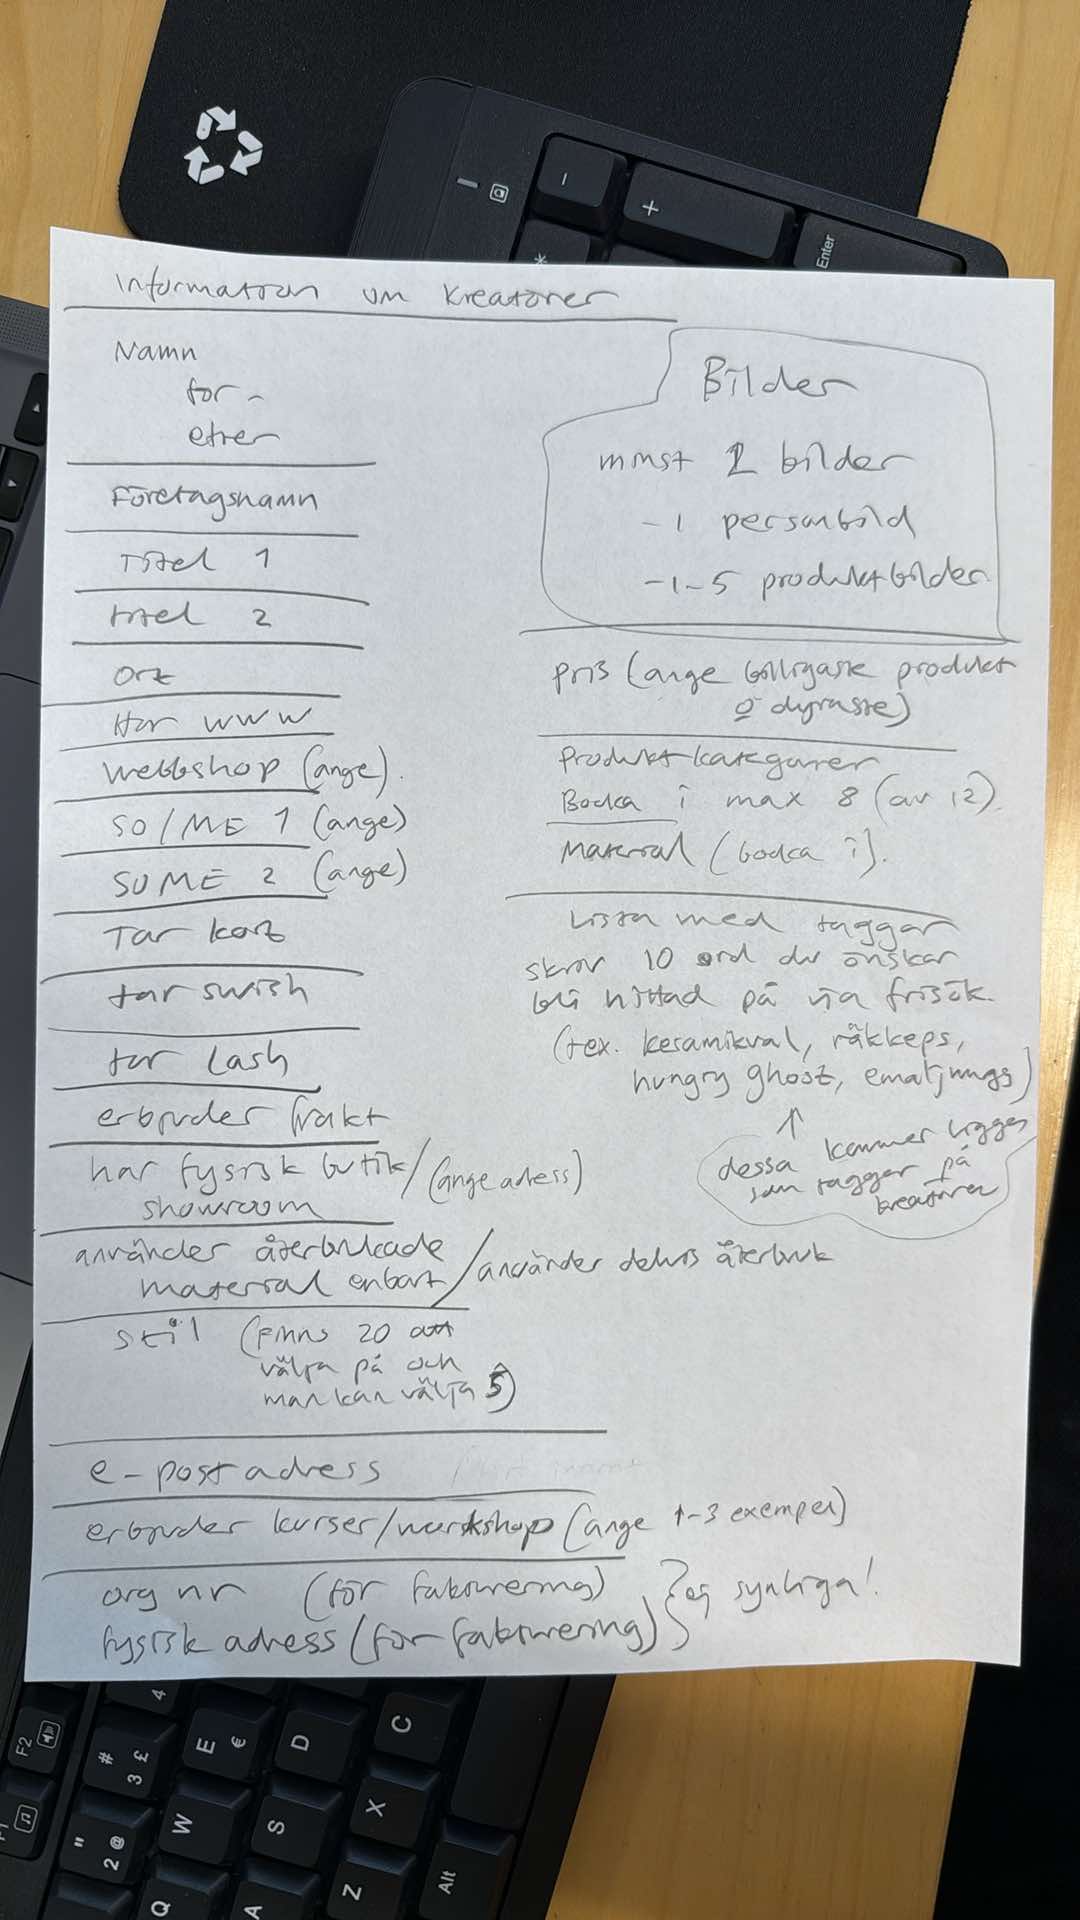 Information om kreatörer
Namn
för-
efter
Företagsnamn
Titel 1
titel 2
Ort
Har www
webbshop (ange).
SO/ME 1 (ange)
SOME 2 (ange)
Tar kort
tar swish
tar cash
erbjuder frakt
har fysisk butik/(ange adress)
showroom
använder återbrukade
material enbart/använder delvis återbruk
stil (finns 20 att
välja på och
man kan välja 5)
e-postadress
erbjuder kurser/workshop (ange 1-3 exempel)
org nr (för fakturering)
fysisk adress (för fakturering)
} ej synliga!
Bilder
minst 2 bilder
-1 personbild
-1-5 produktbilder
pris (ange billigaste produkt
o dyraste)
Produktkategorier
Bocka i max 8 (av 12).
Material (bocka i).
Lista med taggar
skriv 10 ord du önskar
bli hittad på via frisök.
(tex. keramikval, räkkeps,
hungry ghost, emaljmugs)
↑
dessa kommer ligga
som taggar på
kreatören
-
+
*
Enter
F2
F1
4
# 3 £
" 2 @
E €
D
C
W
S
X
Q
A
Z
Alt